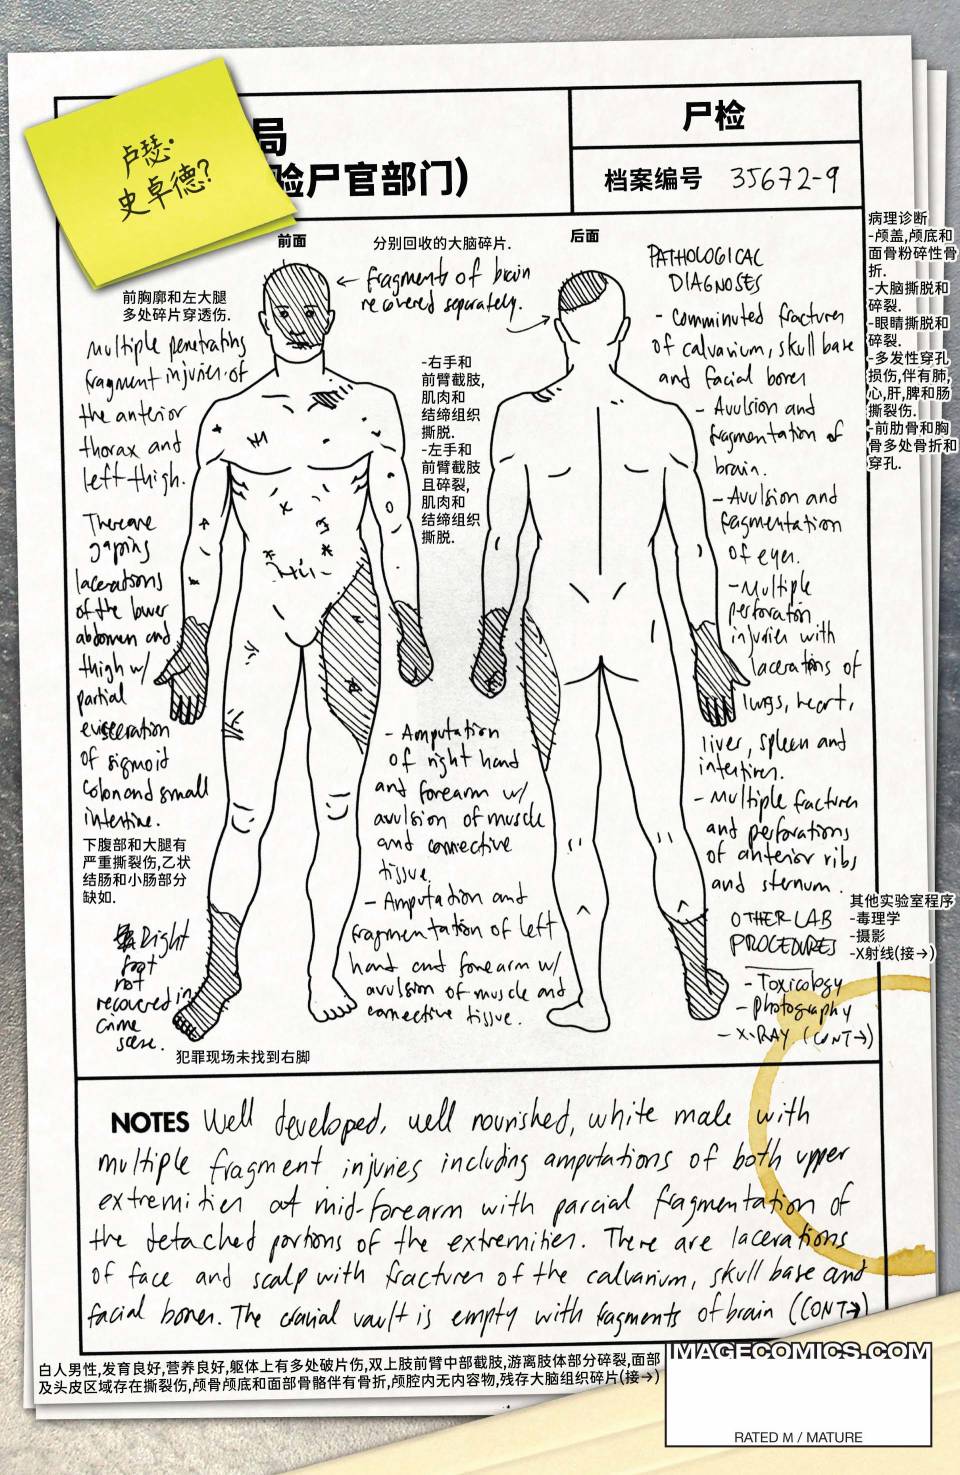 卢瑟·
史卓德?
局
验尸官部门)
尸检
档案编号 35672-9
前面
后面
分别回收的大脑碎片.
← fragments of brain
recovered separately.
前胸廓和左大腿
多处碎片穿透伤.
Multiple penetrating
fragment injuries of
the anterior
thorax and
left thigh.
There are
gaping
lacerations
of the lower
abdomen and
thigh w/
partial
evisceration
of sigmoid
colon and small
intestine.
下腹部和大腿有
严重撕裂伤,乙状
结肠和小肠部分
缺如.
Right
foot
not
recovered in
crime
scene.
犯罪现场未找到右脚
-右手和
前臂截肢,
肌肉和
结缔组织
撕脱.
-左手和
前臂截肢
且碎裂,
肌肉和
结缔组织
撕脱.
- Amputation
of right hand
and forearm w/
avulsion of muscle
and connective
tissue.
- Amputation and
fragmentation of left
hand and forearm w/
avulsion of muscle and
connective tissue.
PATHOLOGICAL
DIAGNOSES
- Comminuted fractures
of calvarium, skull base
and facial bones
- Avulsion and
fragmentation of
brain.
- Avulsion and
fragmentation
of eyes.
- Multiple
perforation
injuries with
lacerations of
lungs, heart,
liver, spleen and
intestines.
- Multiple fractures
and perforations
of anterior ribs
and sternum.
OTHER LAB
PROCEDURES
- Toxicology
- Photography
- X-RAY (CONT→)
病理诊断
-颅盖,颅底和
面骨粉碎性骨
折.
-大脑撕脱和
碎裂.
-眼睛撕脱和
碎裂.
-多发性穿孔
损伤,伴有肺,
心,肝,脾和肠
撕裂伤.
-前肋骨和胸
骨多处骨折和
穿孔.
其他实验室程序
-毒理学
-摄影
-X射线(接→)
NOTES Well developed, well nourished, white male with
multiple fragment injuries including amputations of both upper
extremities at mid-forearm with parcial fragmentation of
the detached portions of the extremities. There are lacerations
of face and scalp with fractures of the calvarium, skull base and
facial bones. The cranial vault is empty with fragments of brain (CONT→)
白人男性,发育良好,营养良好,躯体上有多处破片伤,双上肢前臂中部截肢,游离肢体部分碎裂,面部
及头皮区域存在撕裂伤,颅骨颅底和面部骨骼伴有骨折,颅腔内无内容物,残存大脑组织碎片(接→)
IMAGECOMICS.COM
RATED M / MATURE